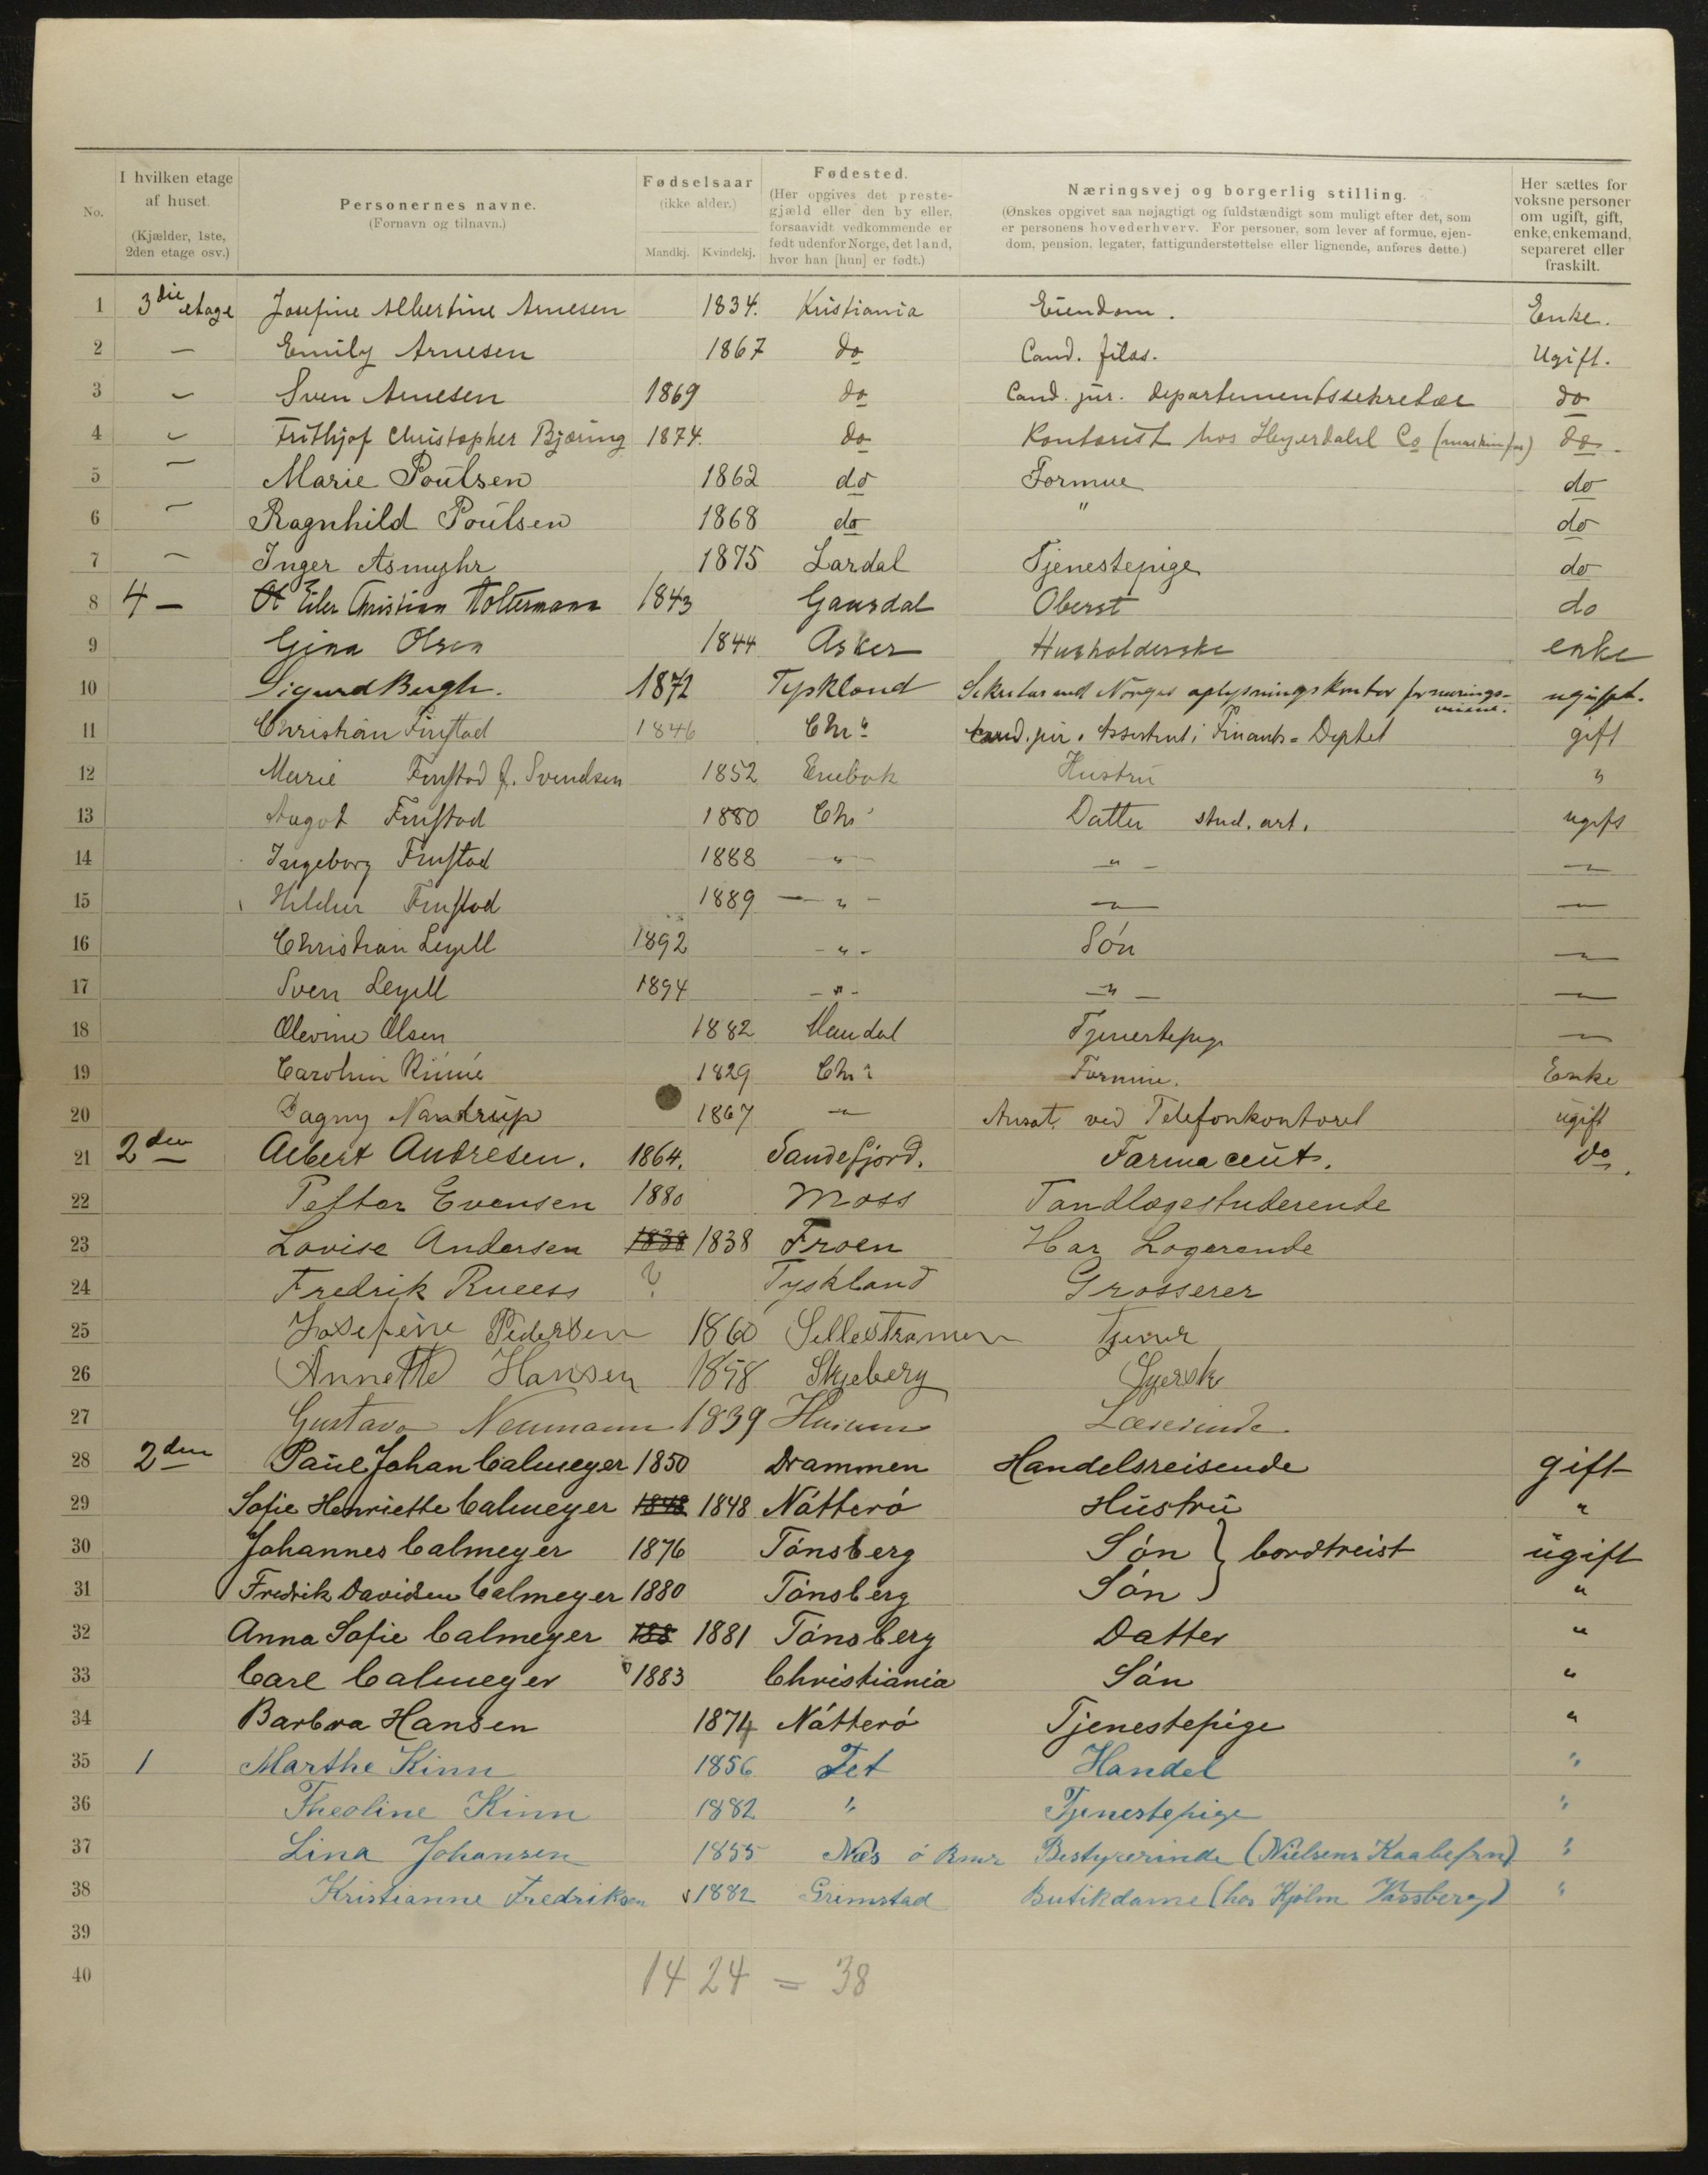 No. | I hvilken etage af huset. (Kjælder, 1ste, 2den etage osv.) | Personernes navne. (Fornavn og tilnavn.) | Fødselsaar (ikke alder.) Mandkj. Kvindekj. | Fødested. (Her opgives det prestegjæld eller den by eller, forsaavidt vedkommende er født udenfor Norge, det land, hvor han [hun] er født.) | Næringsvej og borgerlig stilling. (Ønskes opgivet saa nøjagtigt og fuldstændigt som muligt efter det, som er personens hovederhverv. For personer, som lever af formue, ejendom, pension, legater, fattigunderstøttelse eller lignende, anføres dette.) | Her sættes for voksne personer om ugift, gift, enke, enkemand, separeret eller fraskilt.
1 3die etage Josefine Albertine Arnesen 1834. Kristiania Eiendom. Enke.
2 — Emily Arnesen 1867 do Cand. filos. Ugift.
3 — Sven Arnesen 1869 do Cand. jur. departementssekretær do
4 — Frithjof Christopher Bjøring 1874. do Kontorist hos Heyerdahl Co do
5 — Marie Poulsen 1862 do Formue do
6 — Ragnhild Poulsen 1868 do " do
7 — Inger Asmyhr 1875 Lardal Tjenestepige do
8 4 — Eiler Christian Holtermann 1843 Gausdal Oberst do
9 Gina Olsen 1844 Asker Husholderske enke
10 Sigurd Bergh. 1872 Tyskland Sekretær ved Norges oplysningskontor for næringsveiene. ugift.
11 Christian Finstad 1846 Chra Cand. jur. Assistent i Finants-Deptet gift
12 Marie Finstad f. Svendsen 1852 Enebak Hustru "
13 Aagot Finstad 1880 Chra Datter stud. art. ugift
14 Ingeborg Finstad 1888 — " — — " — —
15 Hildur Finstad 1889 — " — — " — —
16 Christian Seyell 1892 — " — Søn —
17 Sven Seyell 1894 — " — — " — —
18 Olevine Olsen 1882 Mandal Tjenestepige —
19 Carolin 1829 Chra Formue. Enke
20 Dagny Nandrup 1867 — Ansat ved Telefonkontoret ugift
21 2den Albert Andresen. 1864. Sandefjord. Farmaceut. do.
22 Petter Evensen 1880 Moss Tandlægestuderende
23 Lovise Andersen 1838 1838 Froen Har Logerende
24 Fredrik Rueess ? Tyskland Grosserer
25 Josefine Pedersen 1860 Sellestrømen Tjener
26 Annette Hansen 1858 Skjeberg Syersk
27 Gustava Neumann 1839 Hurum Lærerinde
28 2den Paul Johan Calmeyer 1850 Drammen Handelsreisende gift
29 Sofie Henriette Calmeyer 1848 1848 Nøtterø Hustru "
30 Johannes Calmeyer 1876 Tønsberg Søn } bortreist ugift
31 Fredrik Davidsen Calmeyer 1880 Tønsberg Søn "
32 Anna Sofie Calmeyer 188 1881 Tønsberg Datter "
33 Carl Calmeyer 1883 Christiania Søn "
34 Barbra Hansen 1874 Nøtterø Tjenestepige "
35 1 Marthe Kinn 1856 Fet Handel "
36 Theoline Kinn 1882 " Tjenestepige "
37 Lina Johansen 1855 Næs ø Rmr Bestyrerinde (Nielsens Kaabefrn) "
38 Kristianne Fredriksen 1882 Grimstad Butikdame (hos Hjolm Vassberg) "
39
40
14 24 = 38